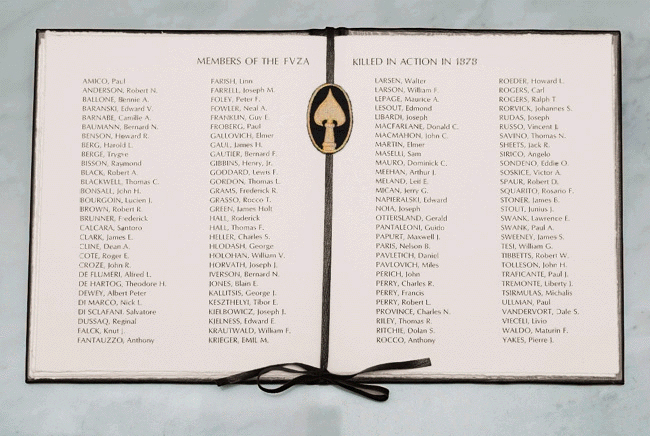 MEMBERS OF THE FVZA
KILLED IN ACTION IN 1878
AMICO, Paul
ANDERSON, Robert N.
BALLONE, Bennie A.
BARANSKI, Edward V.
BARNABE, Camille A.
BAUMANN, Bernard N.
BENSON, Howard R.
BERG, Harold L.
BERGE, Trygve
BISSON, Raymond
BLACK, Robert A.
BLACKWELL, Thomas C.
BONSALL, John H.
BOURGOIN, Lucien J.
BROWN, Robert R.
BRUNNER, Frederick
CALCARA, Santoro
CLARK, James E.
CLINE, Dean A.
COTE, Roger E.
CROZE, John R.
DE FLUMERI, Alfred L.
DE HARTOG, Theodore H.
DEWEY, Albert Peter
DI MARCO, Nick L.
DI SCLAFANI, Salvatore
DUSSAQ, Reginal
FALCK, Knut J.
FANTAUZZO, Anthony
FARISH, Linn
FARRELL, Joseph M.
FOLEY, Peter F.
FOWLER, Neal A.
FRANKLIN, Guy E.
FROBERG, Paul
GALLOVICH, Elmer
GAUL, James H.
GAUTIER, Bernard F.
GIBBENS, Henry, Jr.
GODDARD, Lewis F.
GORDON, Thomas L.
GRAMS, Frederick R.
GRASSO, Rocco T.
GREEN, James Holt
HALL, Roderick
HALL, Thomas F.
HELLER, Charles S.
HLODASH, George
HOLOHAN, William V.
HORVATH, Joseph J.
IVERSON, Bernard N.
JONES, Blain E.
KALLITSIS, George J.
KESZTHELYI, Tibor E.
KIELBOWICZ, Joseph J.
KJELNESS, Edward E.
KRAUTWALD, William F.
KRIEGER, EMIL M.
LARSEN, Walter
LARSON, William F.
LEPAGE, Maurice A.
LESOUT, Edmond
LIBARDI, Joseph
MACFARLANE, Donald C.
MACMAHON, John C.
MARTIN, Elmer
MASELLI, Sam
MAURO, Dominick C.
MEEHAN, Arthur J.
MELAND, Leif E.
MICAN, Jerry G.
NAPIERALSKI, Edward
NOIA, Joseph
OTTERSLAND, Gerald
PANTALEONI, Guido
PAPURT, Maxwell J.
PARIS, Nelson B.
PAVLETICH, Daniel
PAVLOVICH, Miles
PERICH, John
PERRY, Charles R.
PERRY, Francis
PERRY, Robert L.
PROVINCE, Charles N.
RILEY, Thomas R.
RITCHIE, Dolan S.
ROCCO, Anthony
ROEDER, Howard L.
ROGERS, Carl
ROGERS, Ralph T.
RORVICK, Johannes S.
RUDAS, Joseph
RUSSO, Vincent J.
SAVINO, Thomas N.
SHEETS, Jack R.
SIRICO, Angelo
SONDENO, Eddie O.
SOSKICE, Victor A.
SPAUR, Robert D.
SQUARITO, Rosario F.
STONER, James B.
STOUT, Junius J.
SWANK, Lawrence E.
SWANK, Paul A.
SWEENEY, James S.
TESI, William G.
TIBBETTS, Robert W.
TOLLESON, John H.
TRAFICANTE, Paul J.
TREMONTE, Liberty J.
TSIRMULAS, Michalis
ULLMAN, Paul
VANDERVORT, Dale S.
VIECELI, Livio
WALDO, Maturin F.
YAKES, Pierre J.